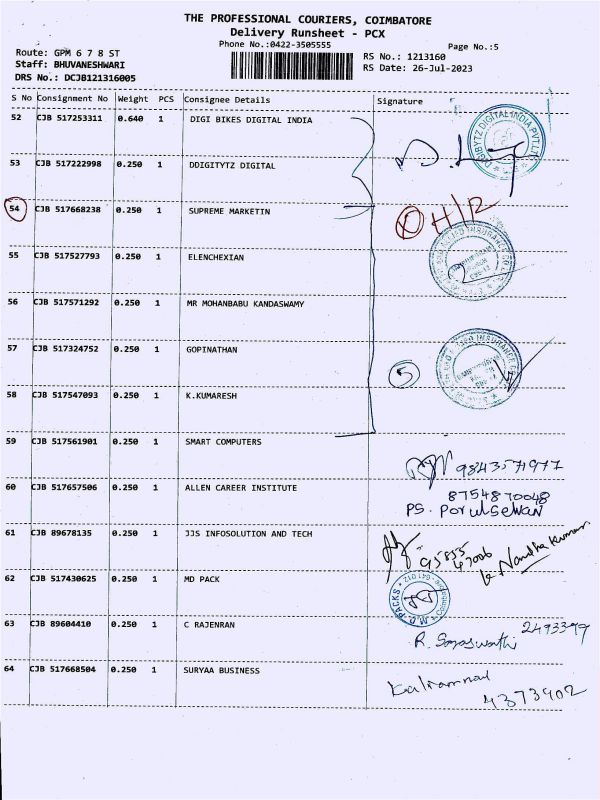 THE PROFESSIONAL COURIERS, COIMBATORE
Delivery Runsheet - PCX
Phone No.:0422-3505555
Page No.:5
Route: GPM 6 7 8 ST
RS No.: 1213160
Staff: BHUVANESHWARI
RS Date: 26-Jul-2023
DRS No.: DCJB121316005
S No Consignment No Weight PCS Consignee Details Signature
52 CJB 517253311 0.640 1 DIGI BIKES DIGITAL INDIA
53 CJB 517222998 0.250 1 DDIGITYTZ DIGITAL
54 CJB 517668238 0.250 1 SUPREME MARKETIN
H/R
55 CJB 517527793 0.250 1 ELENCHEXIAN
56 CJB 517571292 0.250 1 MR MOHANBABU KANDASWAMY
57 CJB 517324752 0.250 1 GOPINATHAN
5
58 CJB 517547093 0.250 1 K.KUMARESH
59 CJB 517561901 0.250 1 SMART COMPUTERS
9843571977
60 CJB 517657506 0.250 1 ALLEN CAREER INSTITUTE
8754870048
PS. Porulselvan
61 CJB 89678135 0.250 1 JJS INFOSOLUTION AND TECH
95855
47006
Nandha kumar
62 CJB 517430625 0.250 1 MD PACK
63 CJB 89604410 0.250 1 C RAJENRAN
2493399
R. Saraswathi
64 CJB 517668504 0.250 1 SURYAA BUSINESS
4373902